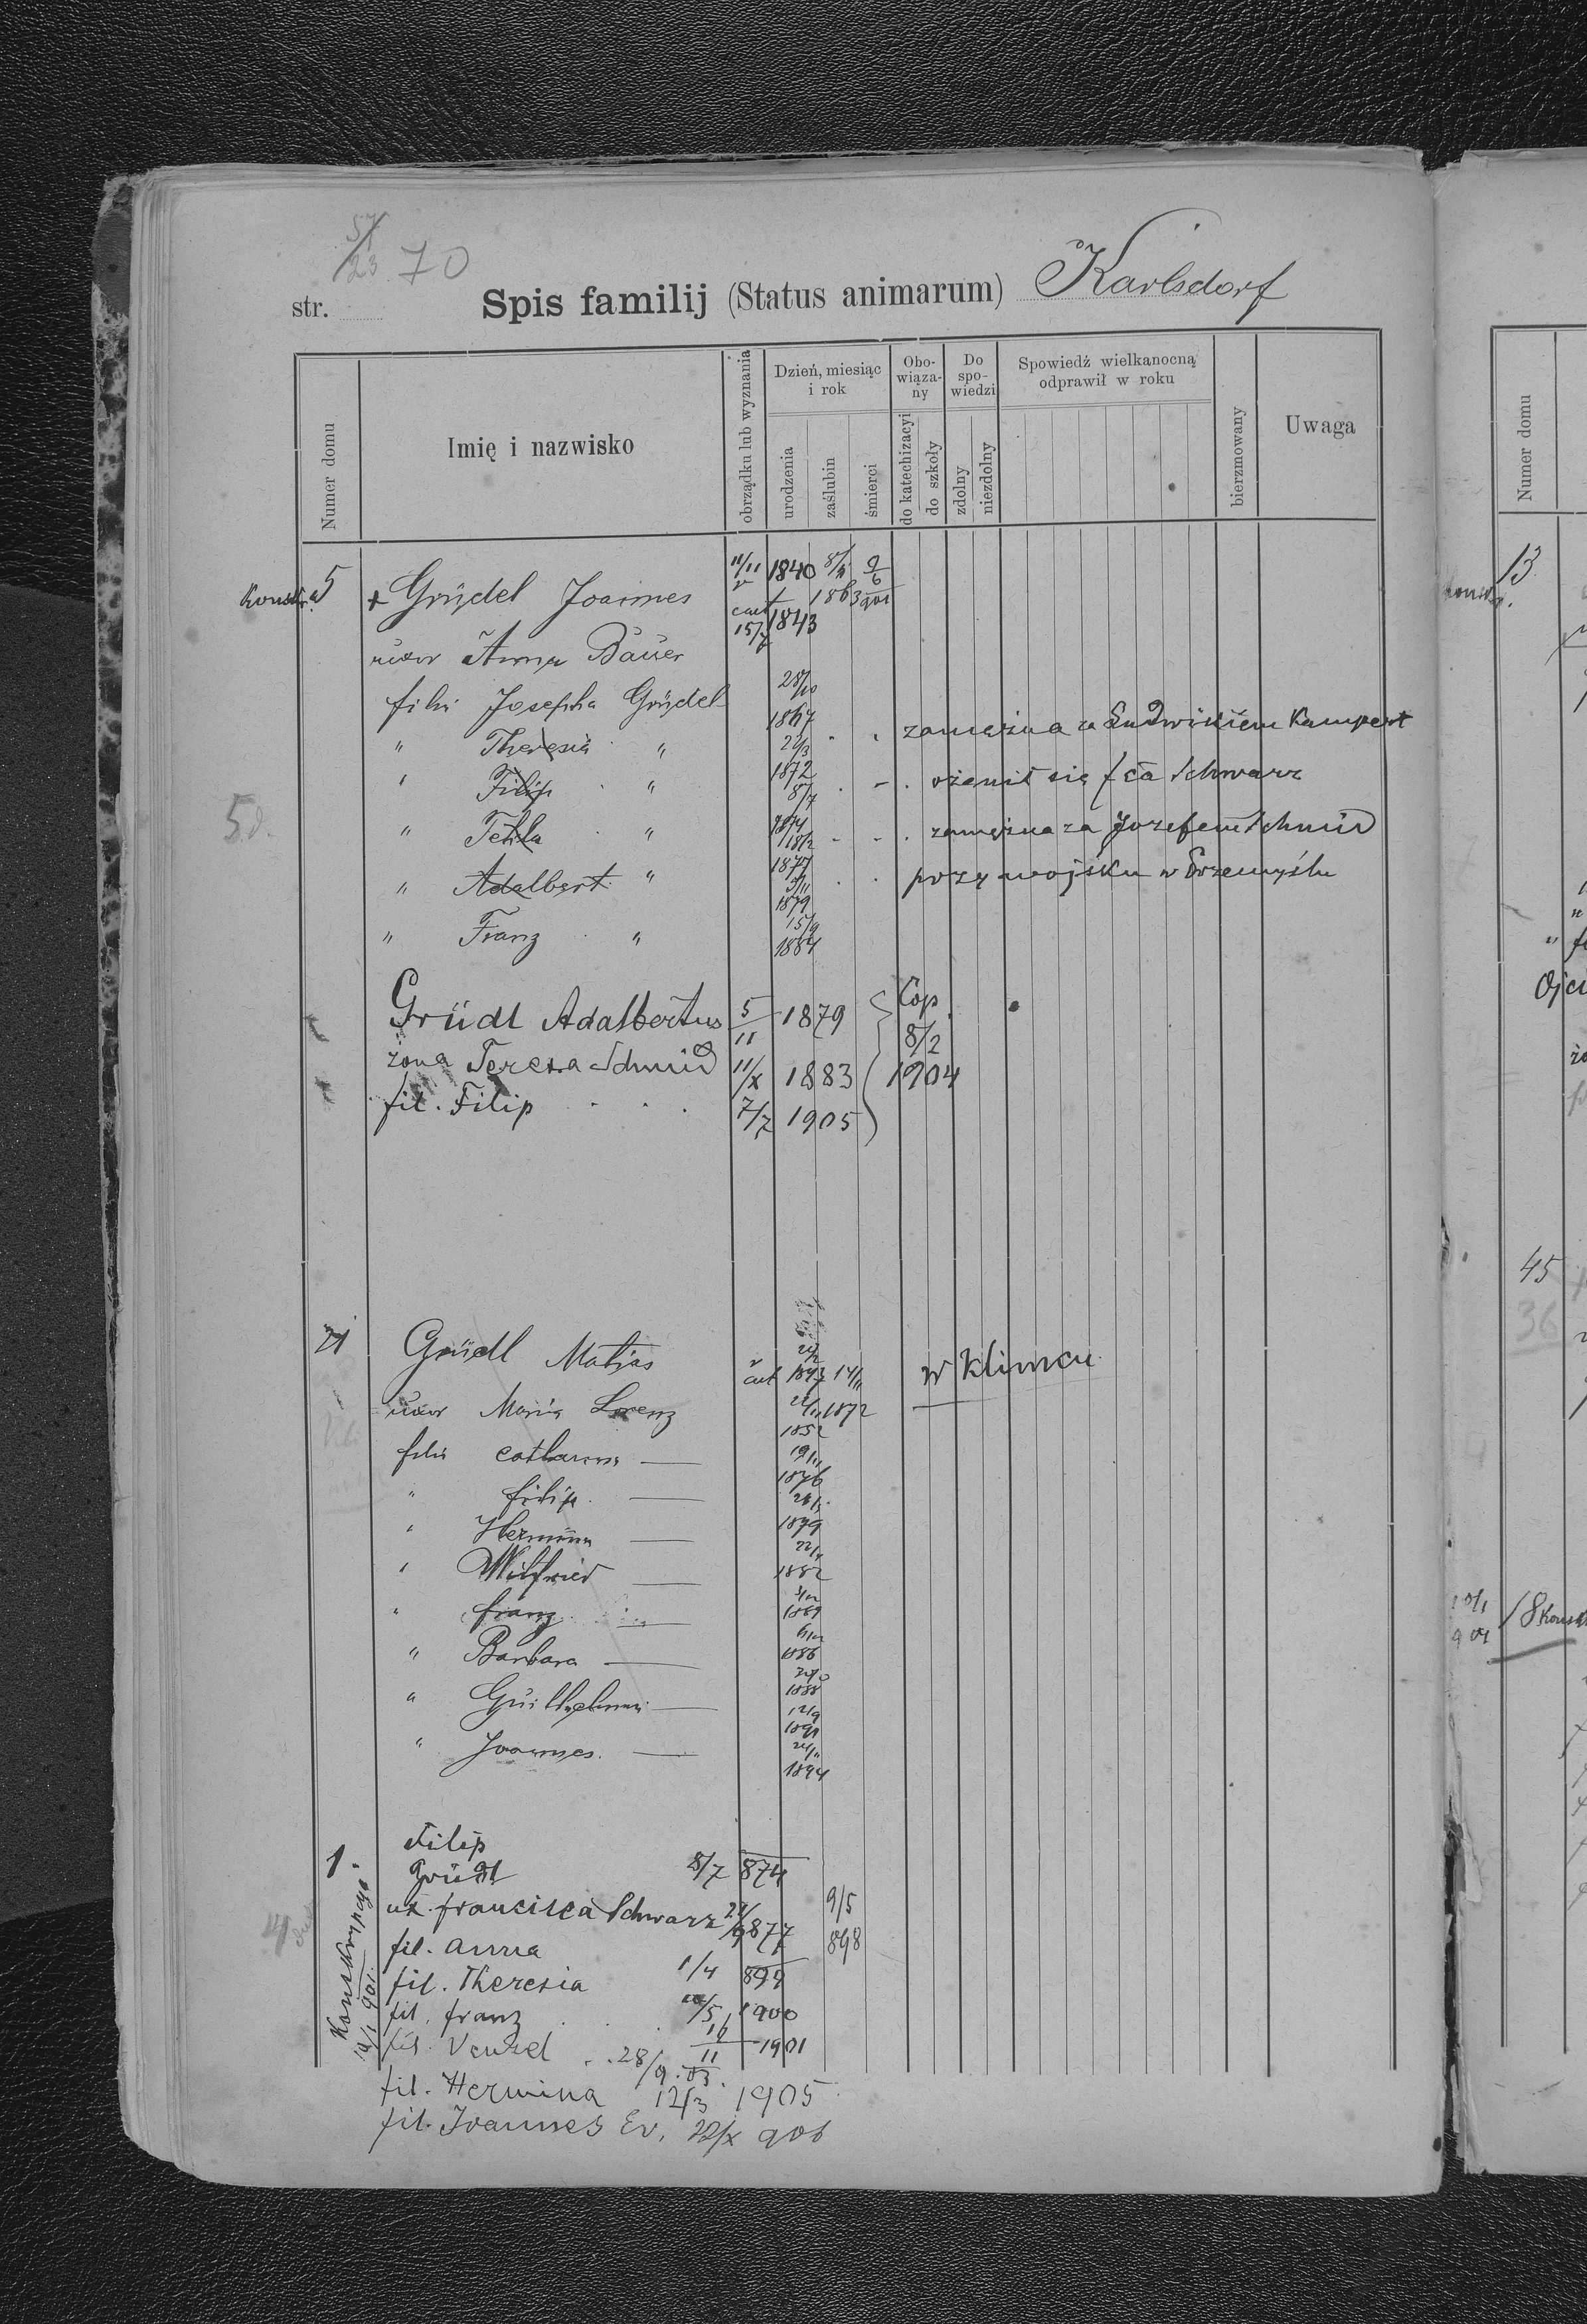 57/23 70
str. Spis familij (Status animarum) Karlsdorf
Numer domu
Imię i nazwisko
obrządku lub wyznania
Dzień, miesiąc i rok
urodzenia
zaślubin
śmierci
Obowiązany
do katechizacyi
do szkoły
Do spowiedzi
zdolny
niezdolny
Spowiedź wielkanocną odprawił w roku
bierzmowany
Uwaga
5 + Grüdel Joannes 11/11 1840 1863 9/6 901
uxor Anna Bauer 15/7 1843
filii Josepha Grüdel 28/10 1867
" Theresia " 22/3 1872 zamężna za Ludwikiem Kampert
" Filip " 8/7 1874 ożenił się fca Schwarz
5 " Tekla " 18/2 1877 zamężna za Jozefem Schmid
" Adalbert " 5/11 1879 przy wojsku w Przemyślu
" Franz " 15/9 1884
Grüdl Adalbertus 5/11 1879 Cop.
żona Teresa Schmid 11/X 1883 8/2 1904
fil. Filip 7/7 1905
21 Grüdl Matjas 1847 14/11 w Klimcu
uxor Maria Lorenz 1852 1872
filii Catharina 19/11 1876
" filip 1879
" Hermina 1882
" Wilfried
" franz
" Barbara 1886
" Guilhelmus 1888
" Joannes 1894
12/9 1891
24/11
1. Filip
Grüdl 8/7 874
ux. francisca Schwarz 877 9/5 898
fil. Anna 1/4 899
fil. Theresia /5 1900
fil. franz 16/11 1901
fil. Venzel 28/9 .03.
fil. Hermina 12/3 1905
fil. Joannes Ev. 22/X 906
Konskrypcya 901.
Numer domu
13
Ojci
45
36